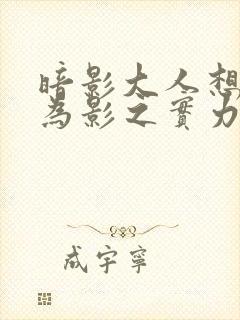 暗影大人想
為影之實力
成宇寧